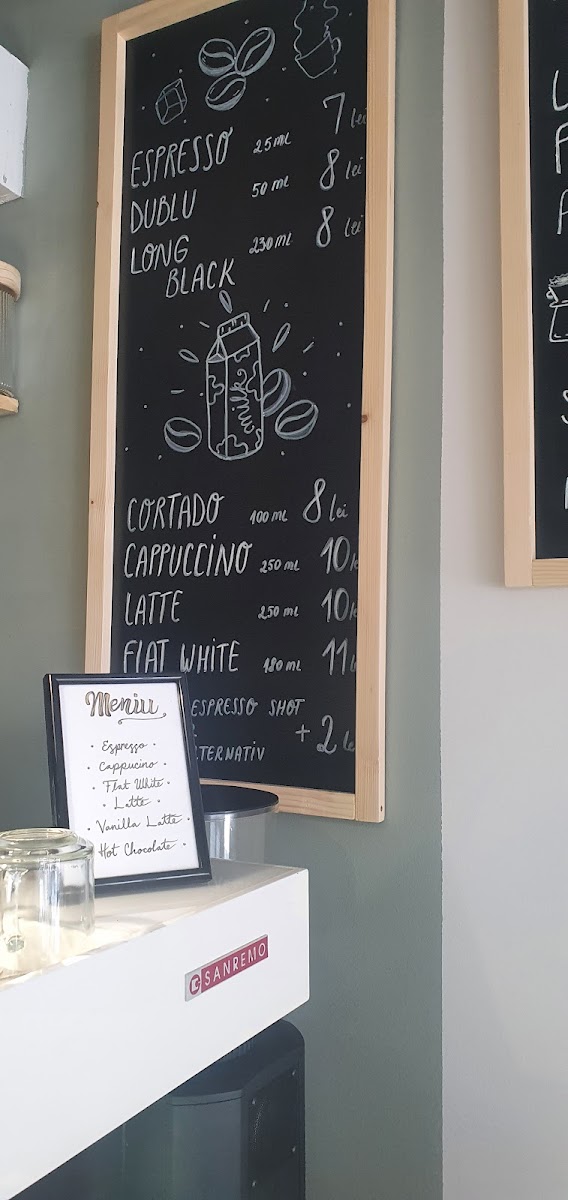 ESPRESSO 25 ml 7 lei
DUBLU 50 ml 8 lei
LONG 230 ml 8 lei
BLACK
milk
CORTADO 100 ml 8 lei
CAPPUCCINO 250 ml 10
LATTE 250 ml 10
FLAT WHITE 180 ml 11
ESPRESSO SHOT
+ 2
Meniu
• Espresso •
• Cappucino •
• Flat White •
• Latte •
• Vanilla Latte •
• Hot Chocolate •
SANREMO